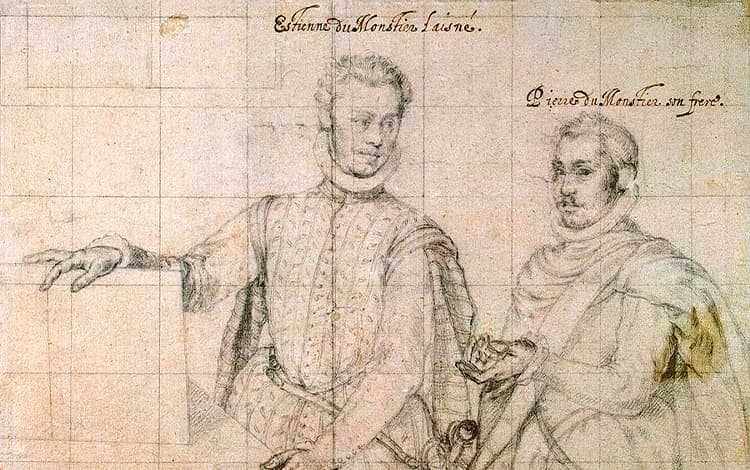 Estienne du Monstier laisné.
Pierre du Monstier son frere.